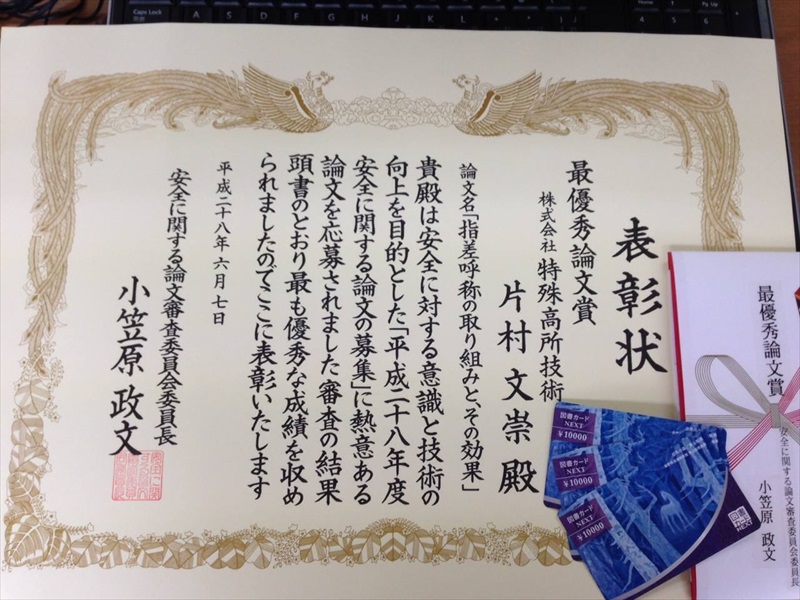 表彰状
最優秀論文賞
株式会社 特殊高所技術
片村文崇 殿
論文名「指差呼称の取り組みと、その効果」
貴殿は安全に対する意識と技術の
向上を目的とした「平成二十八年度
安全に関する論文の募集」に熱意ある
論文を応募されました審査の結果
頭書のとおり最も優秀な成績を収め
られましたのでここに表彰いたします
平成二十八年六月七日
安全に関する論文審査委員会委員長
小笠原 政文
最優秀論文賞
安全に関する論文審査委員会委員長
小笠原 政文
図書カード
NEXT
¥10000
図書カード
NEXT
¥10000
図書カード
NEXT
¥10000
図書カード
NEXT
Caps Lock